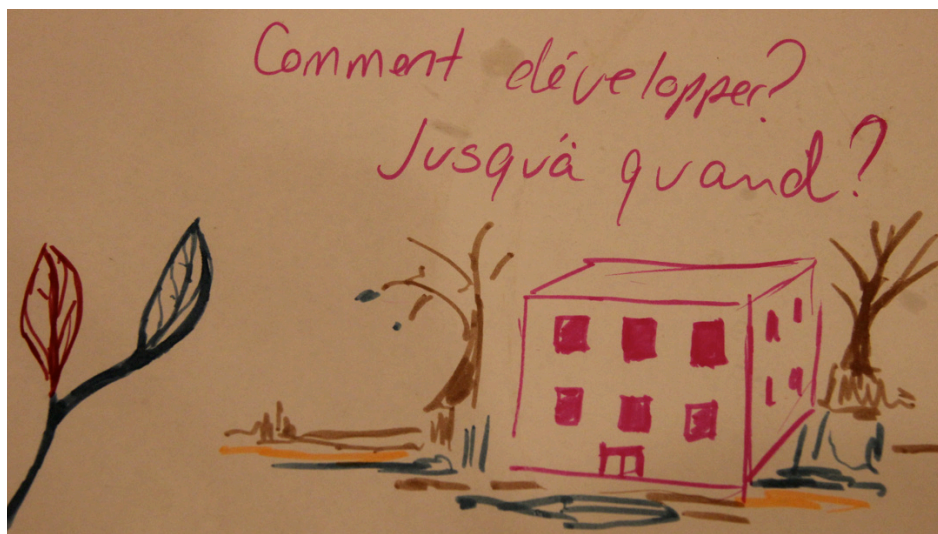 Comment développer?
Jusqu'à quand?